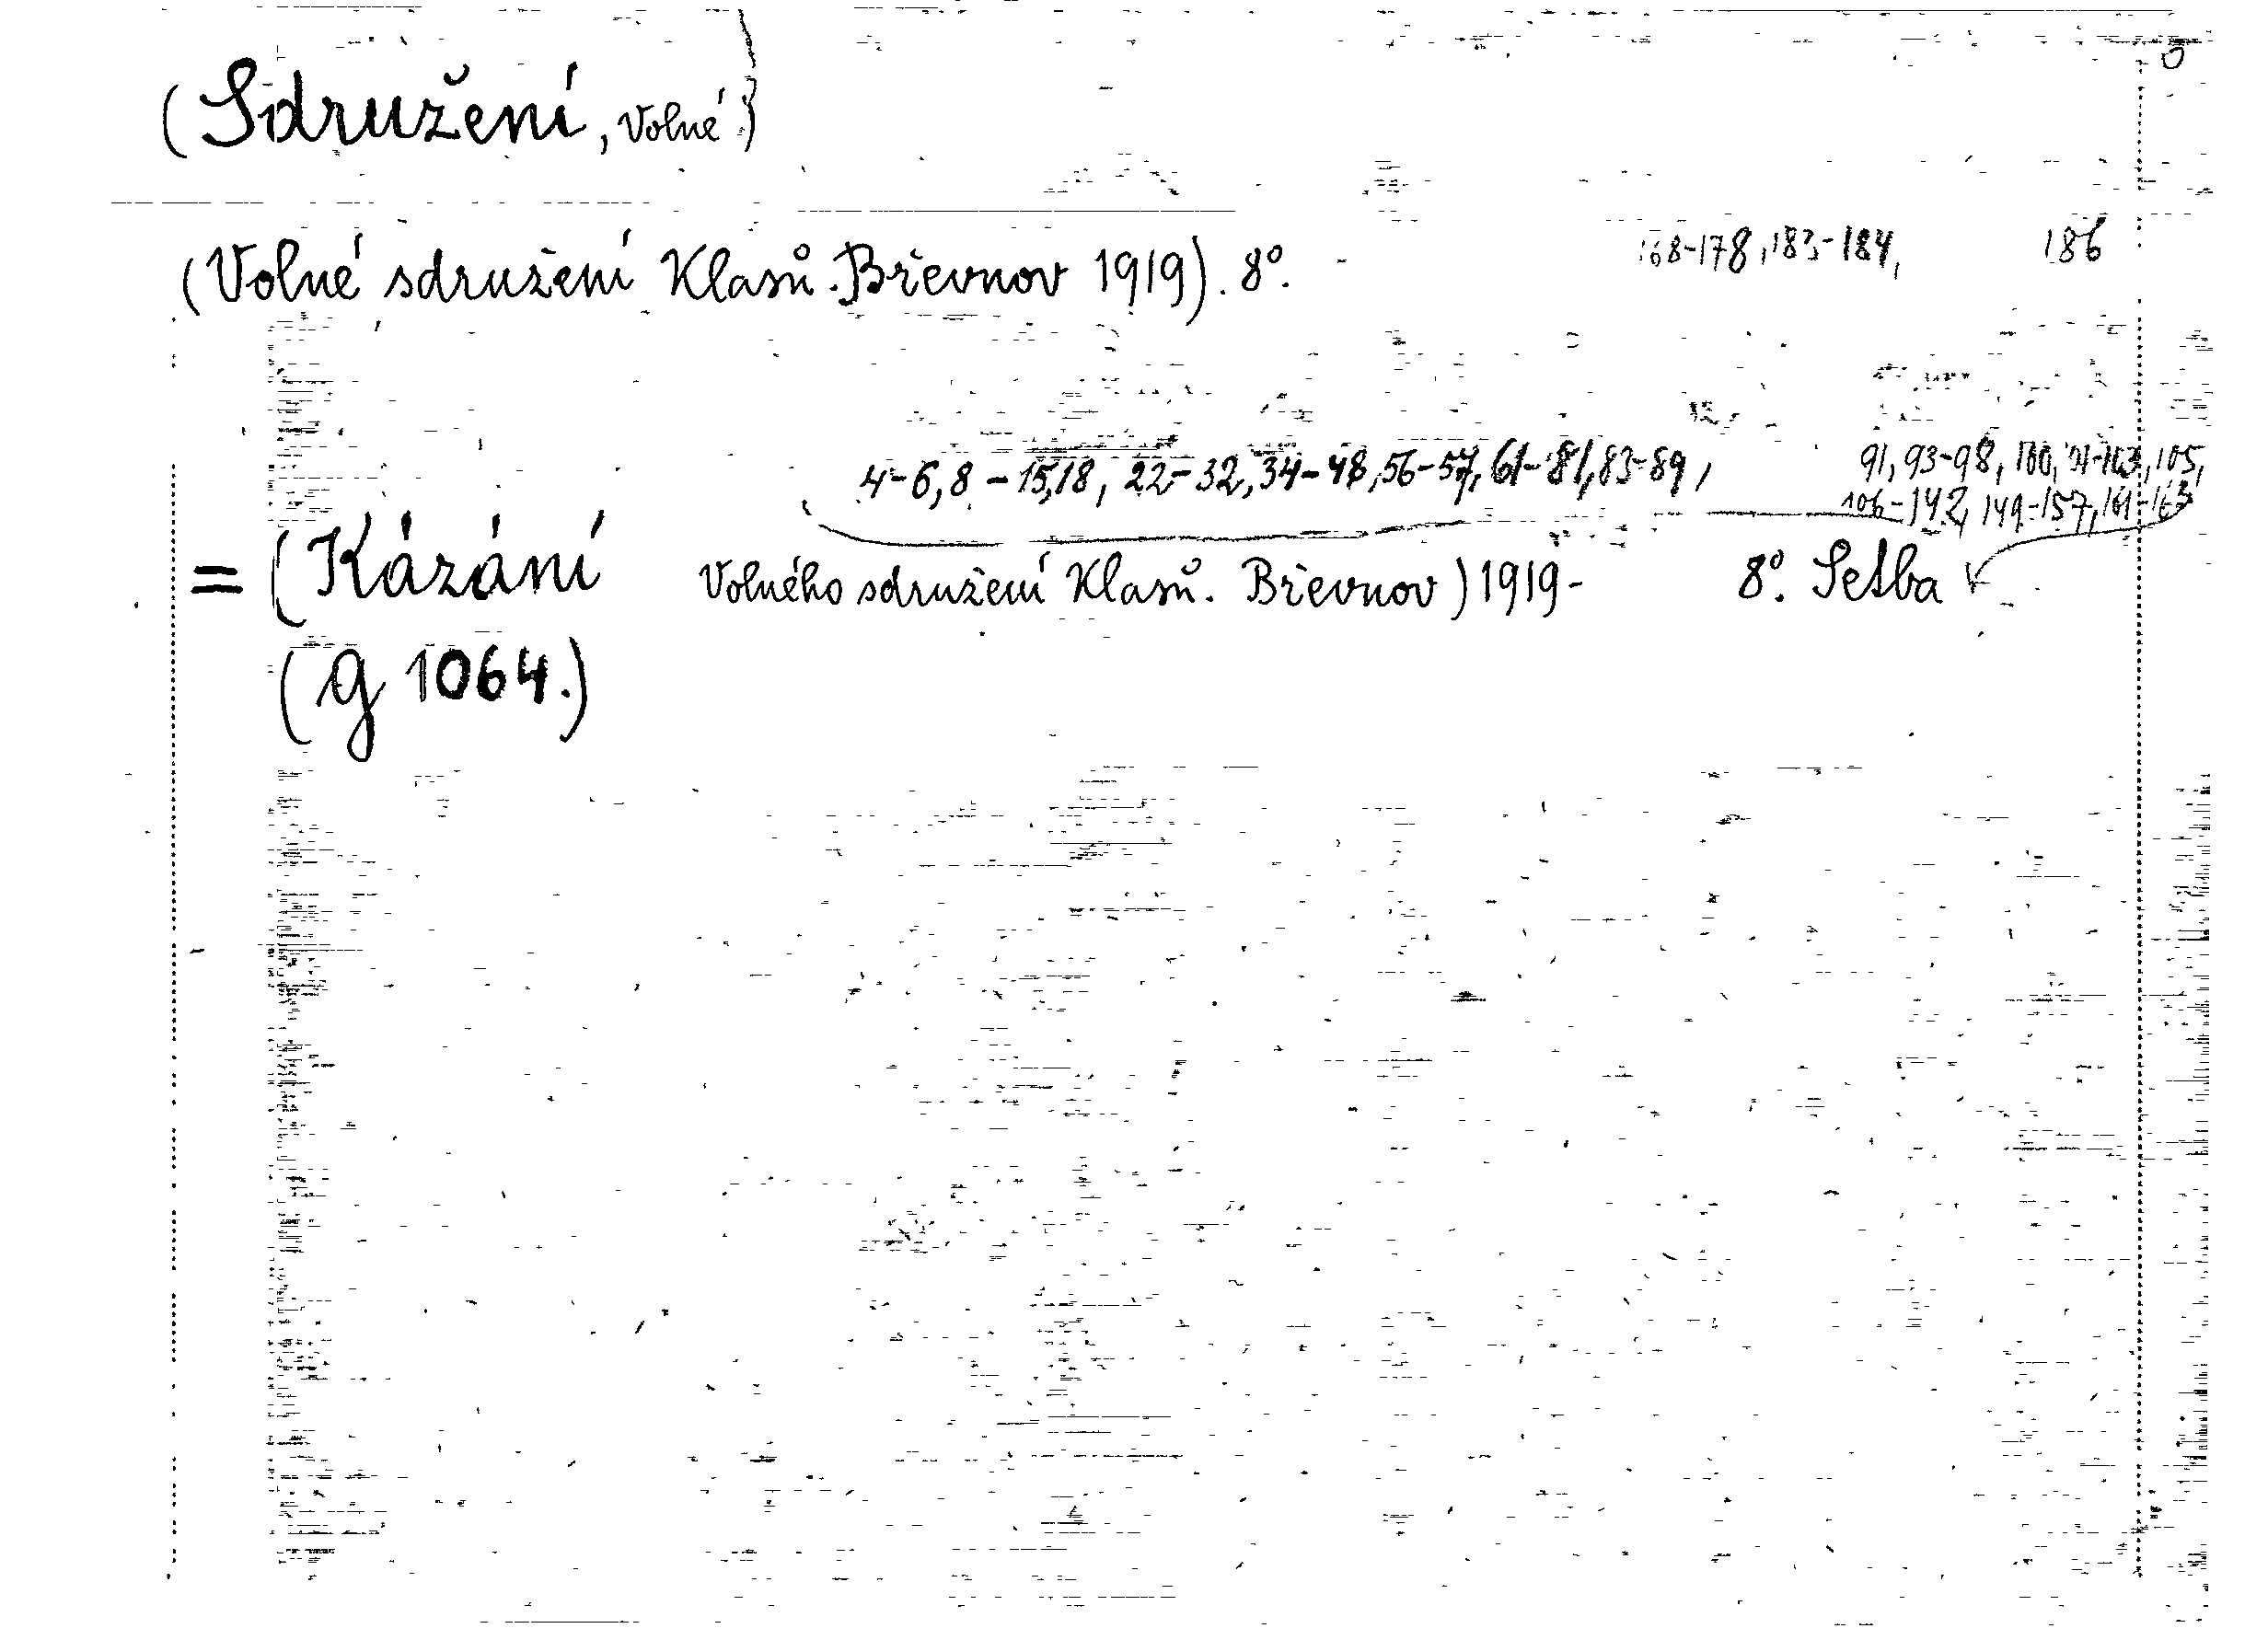 (Sdružení, Volné)
(Volné sdružení Klasů. Břevnov 1919). 8°. 168-178, 183-184, 186
4-6, 8-15, 18, 22-32, 34-48, 56-57, 61-81, 83-89, 91, 93-98, 100, 105,
106-142, 149-157, 161-163
= (Kázání Volného sdružení Klasů. Břevnov) 1919- 8°. Setba
(g 1064.)